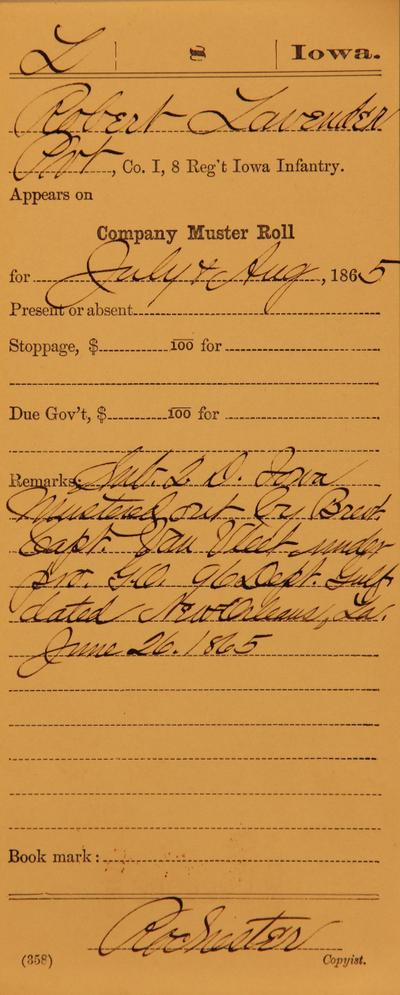 L | 8 | Iowa.
Robert Lavender
Pvt, Co. I, 8 Reg't Iowa Infantry.
Appears on
Company Muster Roll
for July & Aug, 1865
Present or absent
Stoppage, $ 100 for
Due Gov't, $ 100 for
Remarks: Sub. 2 D. Iowa
Mustered out by Brevt.
Capt. Van Vleet under
Pro. G.O. 96 Dept. Gulf
dated New Orleans, La.
June 26. 1865
Book mark:
Rochester
(358) Copyist.